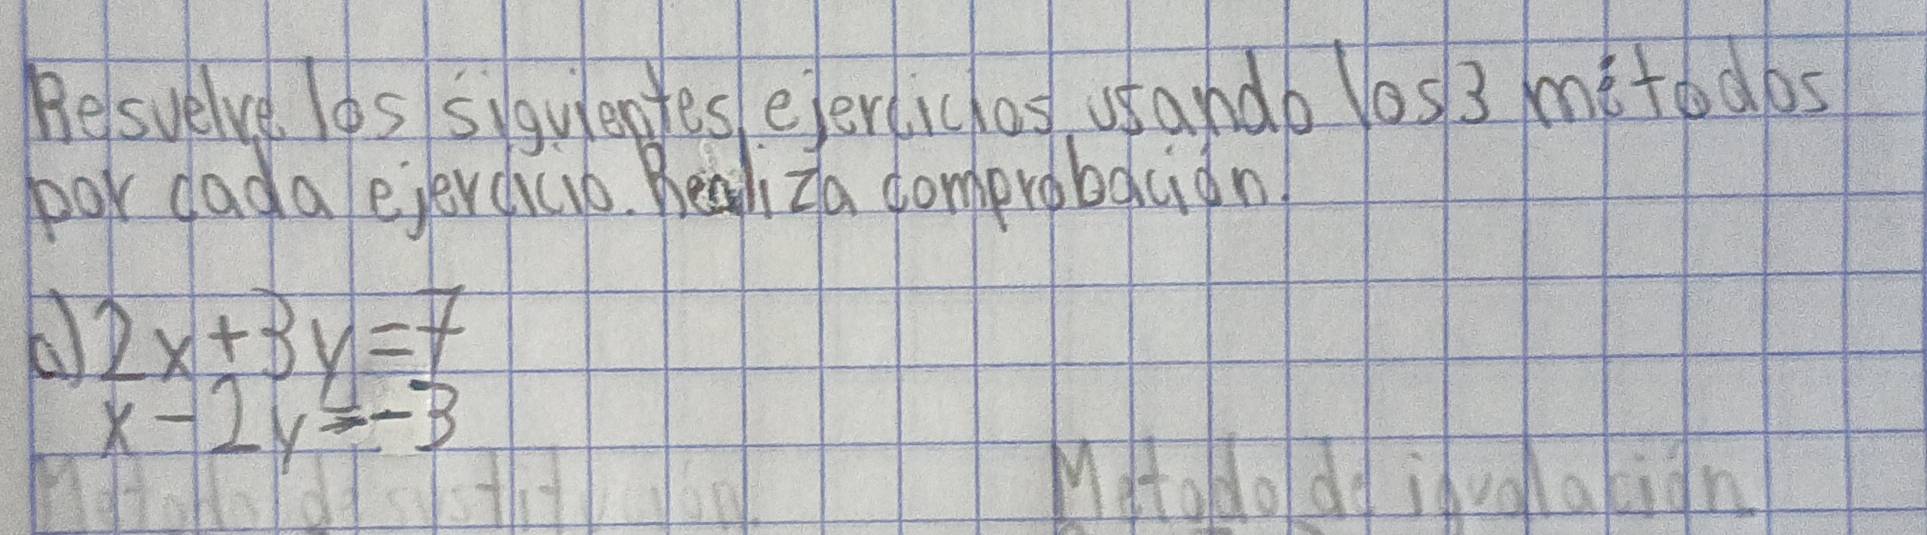 Resuelve los siguientes ejercicios usando los 3 métodos
por cada ejercicio. Realiza comprobación.
a) 2x+3y=7
x-2y=-3
Metodo de sustitución Metodo de igualación